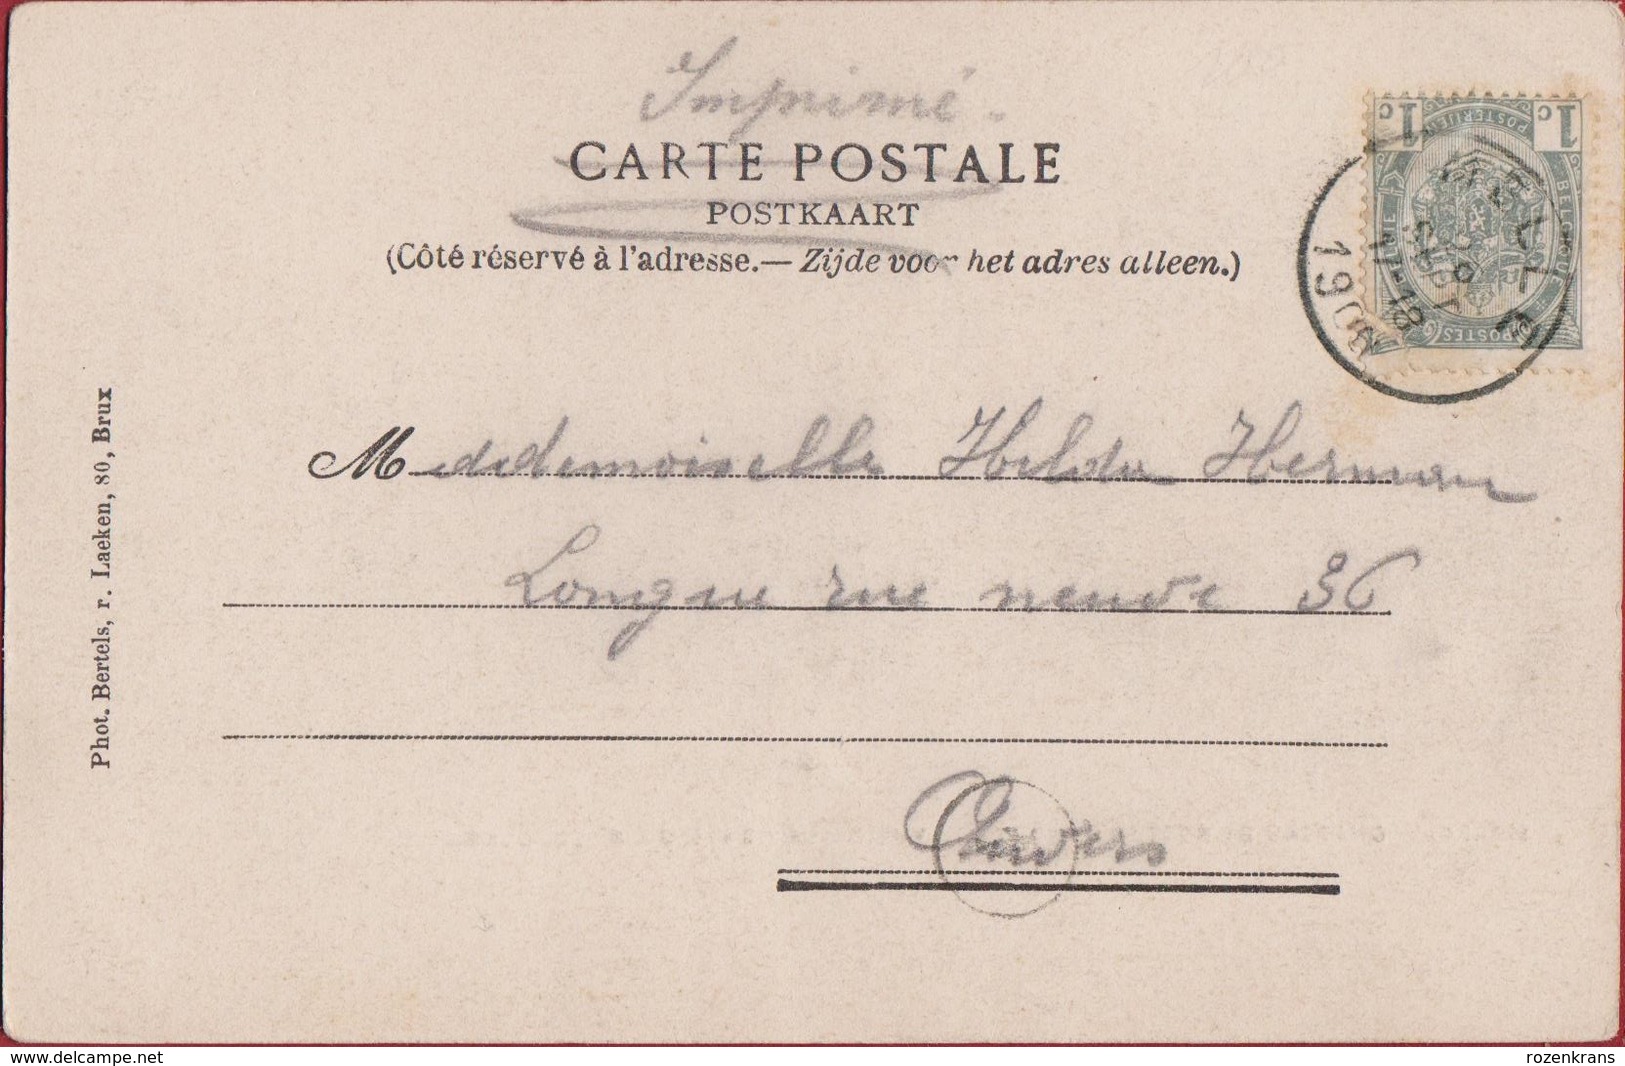 Imprimé.
CARTE POSTALE
POSTKAART
(Côté réservé à l'adresse.— Zijde voor het adres alleen.)
1c 1c
POSTERIJEN
BELGIQUE
POSTES
17-18
190
Phot. Bertels, r. Laeken, 80, Brux
Mademoiselle Helda Herman
Longue rue neuve 36
Anvers
delcampe.net
rozenkrans